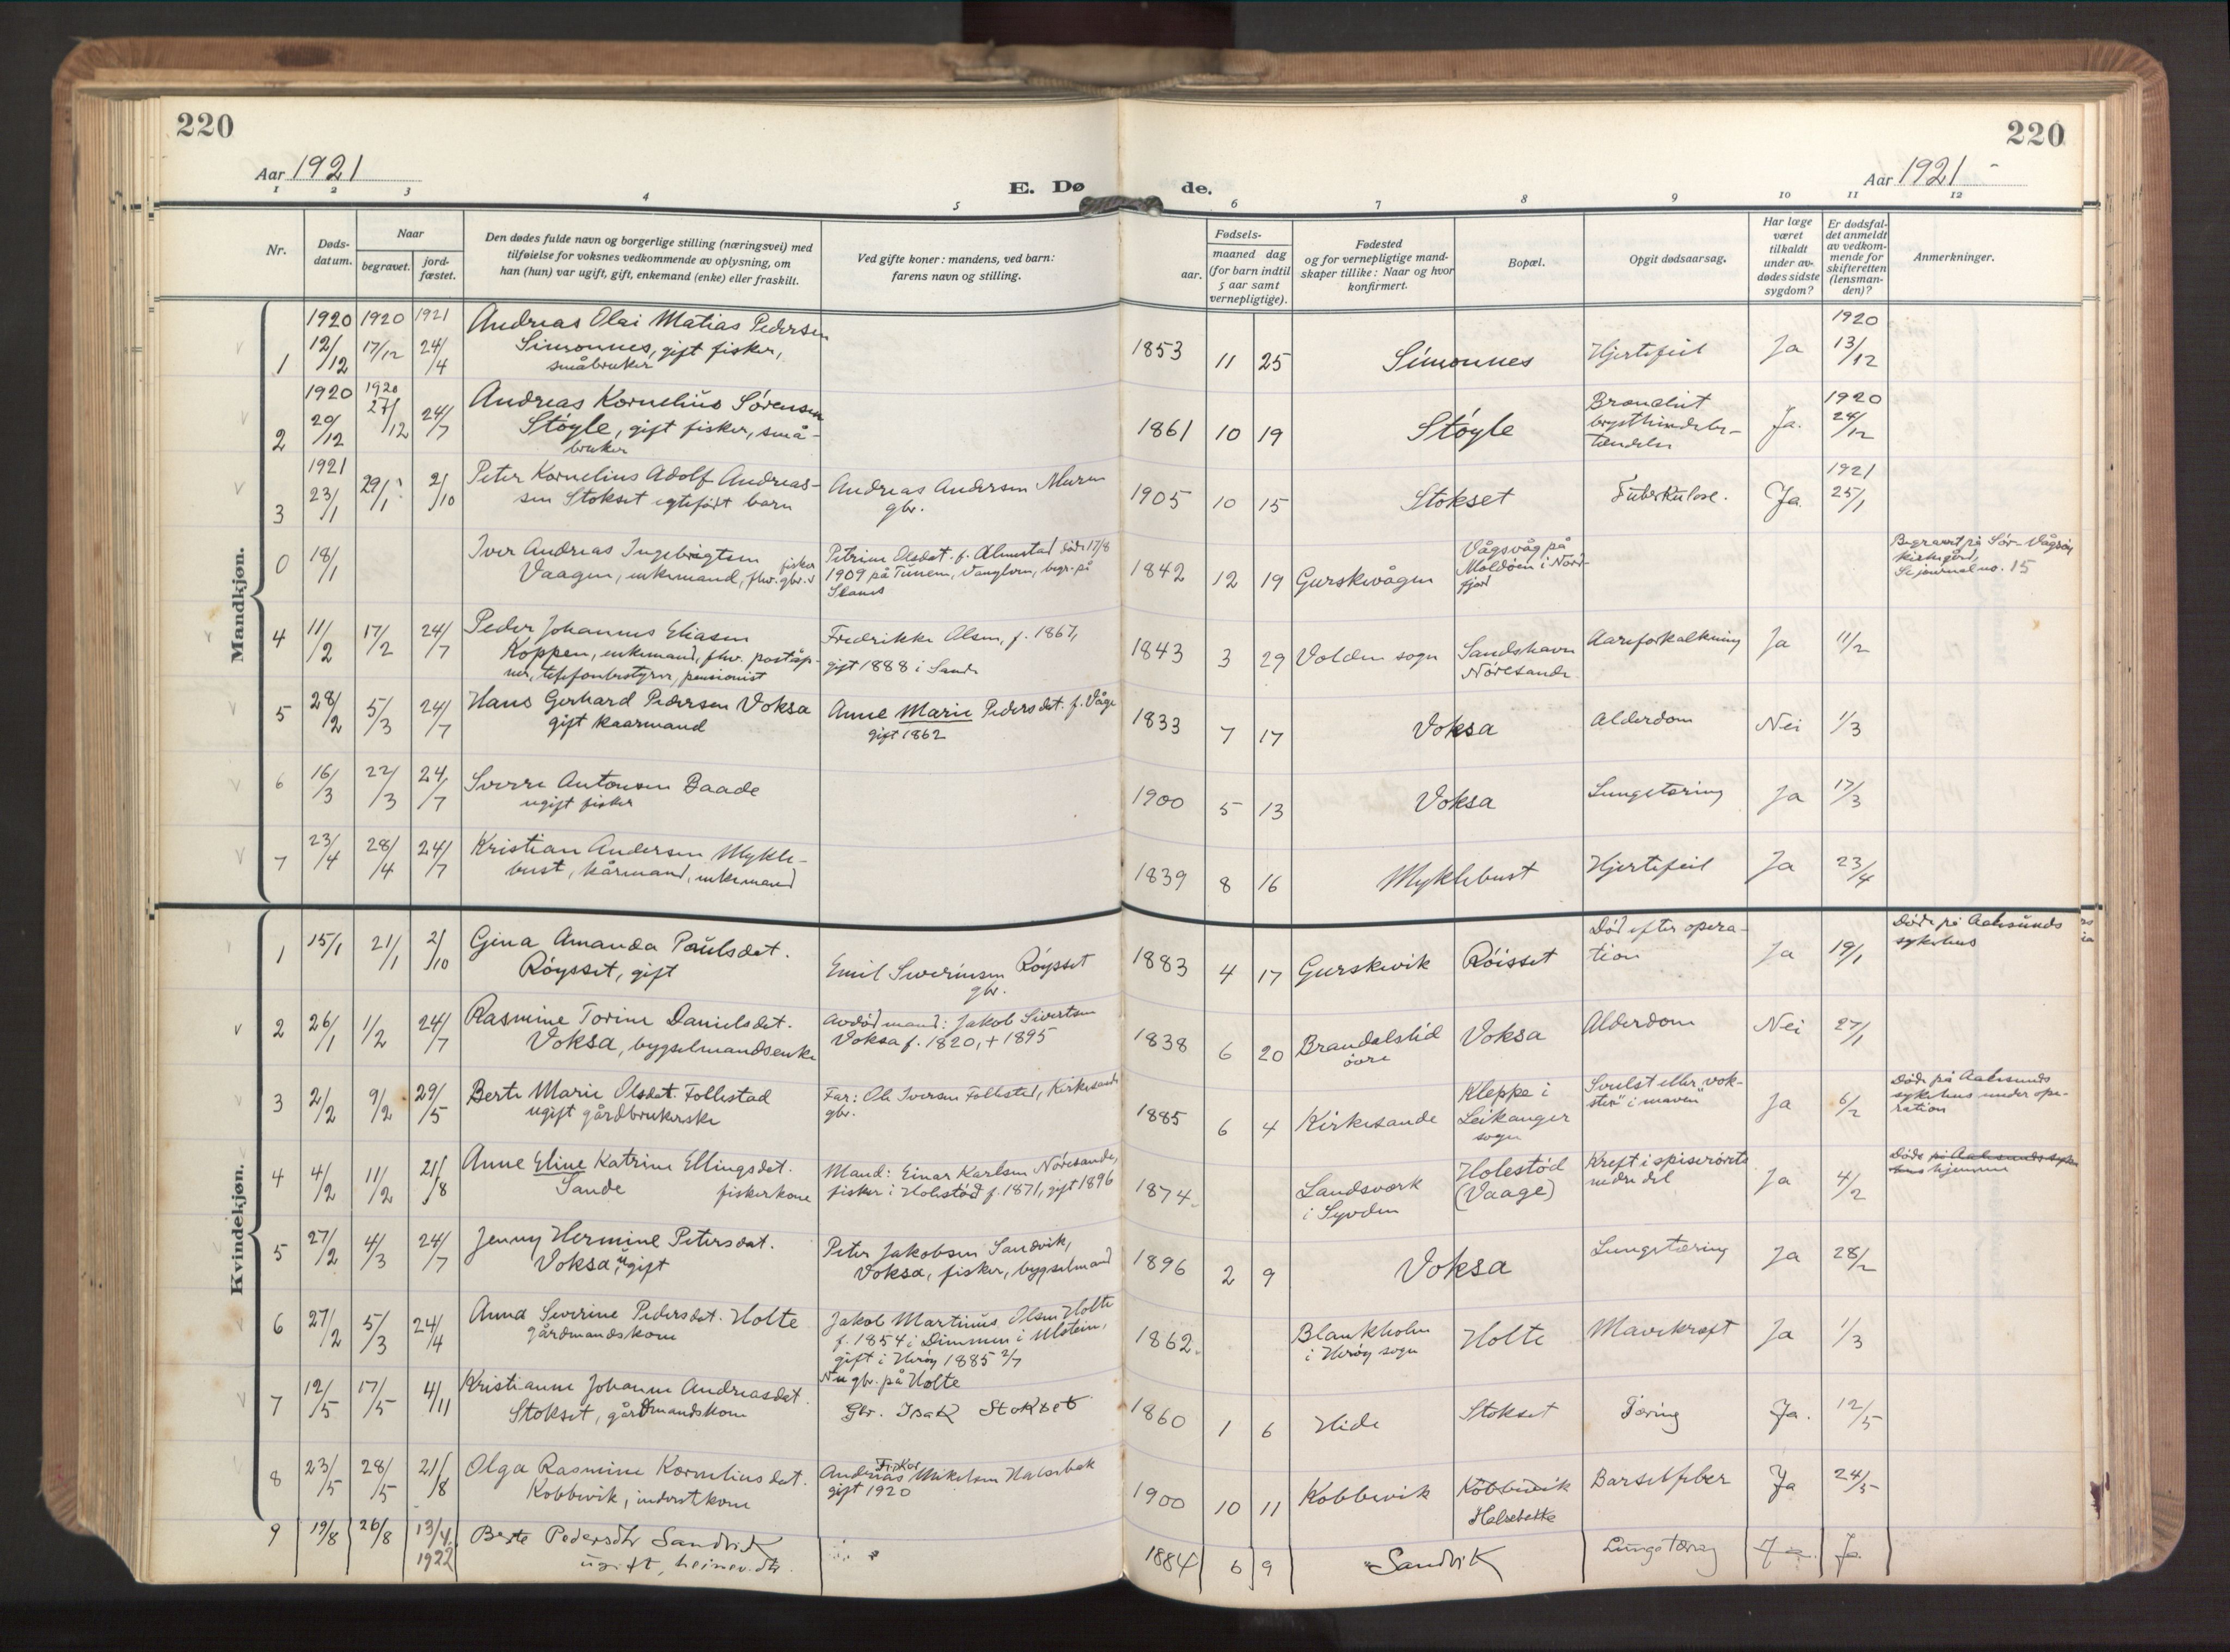 220
220
Aar 1921
E. Dø
de.
Aar 1921
1 2 3 4 5 6 7 8 9 10 11 12
Nr.
Døds-
datum.
Naar
begravet.
jord-
fæstet.
Den dødes fulde navn og borgerlige stilling (næringsvei) med
tilføielse for voksnes vedkommende av oplysning, om
han (hun) var ugift, gift, enkemand (enke) eller fraskilt.
Ved gifte koner: mandens, ved barn:
farens navn og stilling.
Fødsels-
aar.
maaned dag
(for barn indtil
5 aar samt
vernepligtige).
Fødested
og for vernepligtige mand-
skaper tillike: Naar og hvor
konfirmert.
Bopæl.
Opgit dødsaarsag.
Har læge
været
tilkaldt
under av-
dødes sidste
sygdom?
Er dødsfal-
det anmeldt
av vedkom-
mende for
skifteretten
(lensman-
den)?
Anmerkninger.
Mandkjøn.
1
1920 12/12
1920 17/12
1921 24/4
Andreas Olai Matias Pedersen
Simonnes, gift fisker,
småbruker
1853 11 25
Simonnes
Hjertefeil
Ja
1920 13/12
2
1920 20/12
1920 27/12
24/7
Andreas Kornelius Sørensen
Støyle, gift fisker, små-
bruker
1861 10 19
Støyle
brysthindebe-
tændelse
Ja.
1920 24/12
3
1921 23/1
29/1
2/10
Peter Kornelius Adolf Andreas-
sen Stokset egtefødt barn
Andreas Andersen Muren
gbr.
1905 10 15
Stokset
Tuberkulose.
Ja.
1921 25/1
0
18/1
Iver Andreas Ingebrigtsen fisker
Vaagen, enkemand, fhv. gbr. &
Petrine Olsdat. f. Almestad død 17/8
1909 på Tunem, Vanylven, begr. på
Slanes
1842 12 19
Gurskevågen
Vågsvåg på
Moldøen i Nord-
fjord
Begravet på Sør-Vågsøy
kirkegård,
Se journal no. 15
4
11/2
17/2
24/7
Peder Johannes Eliasen
Koppen, enkemand, fhv. poståp-
ner, telefonbestyrer, pensionist
Fredrikke Olsen, f. 1867,
gift 1888 i Sande
1843 3 29
Volden sogn
Sandshavn
Nøresande
Aareforkalkning
Ja
11/2
5
28/2
5/3
24/7
Hans Gerhard Pedersen Voksa
gift kaarmand
Anne Marie Pedersdat. f. Våge
gift 1862
1833 7 17
Voksa
Alderdom
Nei
1/3
6
16/3
22/3
24/7
Sverre Antonsen Baade
ugift fisker
1900 5 13
Voksa
Lungetæring
Ja
17/3
7
23/4
28/4
24/7
Kristian Andersen Mykle-
bust, kårmand, enkemand
1839 8 16
Myklebust
Hjertefeil
Ja
23/4
Kvindekjøn.
1
15/1
21/1
2/10
Gjina Amanda Paulsdat.
Røysset, gift
Emil Severinsen Røysset
gbr.
1883 4 17
Gurskevik
Røisset
Død efter opera-
tion
Ja
19/1
Døde på Aalesunds
sykehus
2
26/1
1/2
24/7
Rasmine Torine Danielsdat.
Voksa, bygselmandsenke
Avdød mand: Jakob Sivertsen
Voksa f. 1820, + 1895
1838 6 20
Brandalstid
øvre
Voksa
Alderdom
Nei
27/1
3
2/2
9/2
29/5
Berte Marie Olsdat. Follestad
ugift gårdbrukerske
Far: Ole Iversen Follestad, Kirkesande
gbr.
1885 6 4
Kirkesande
Kleppe i
Leikanger
sogn
Svulst eller "vok-
ster" i maven
Ja
6/2
Døde på Aalesunds
sykehus under ope-
ration
4
4/2
11/2
21/8
Anne Eline Katrine Ellingsdat.
Sande fiskerkone
Mand: Einar Karlsen Nøresande,
fisker i Holestød f. 1871, gift 1896
1874.
Landsverk
i Syvden
Holestød
(Vaage)
Kreft i spiserørets
nedre del
Ja
4/2
Døde på Aalesunds syke-
hus hjemme
5
27/2
4/3
24/7
Jenny Hermine Petersdat.
Voksa, ugift
Peter Jakobsen Sandvik,
Voksa, fisker, bygselmand
1896 2 9
Voksa
Lungetæring
Ja
28/2
6
27/2
5/3
24/4
Anna Severine Pedersdat. Holte
gårdmandskone
Jakob Martinus Olsen Holte
f. 1854 i Dimmen i Ulstein,
gift i Herøy 1885 2/7
Nu gbr. på Holte
1862.
Blankholm
i Herøy sogn
Holte
Mavekræft
Ja
1/3
7
12/5
17/5
4/11
Kristianne Johanne Andreasdat.
Stokset, gårdmandskone
Gbr. Isak Stokset
1860 1 6
Hide
Stokset
Tæring
Ja.
12/5
8
23/5
28/5
21/8
Olga Rasmine Korneliusdat.
Kobbevik, inderstkone
Fisker
Andreas Mikelsen Halsebak
gift 1920
1900 10 11
Kobbevik
Kobbevik
Barselfeber
Ja
24/5
9
19/8
26/8
13/4 1922
Berte Pedersdtr Sandvik
ugift, heimev.dtr.
1884 6 9
Sandvik
Lungetæring
Ja.
Ja.